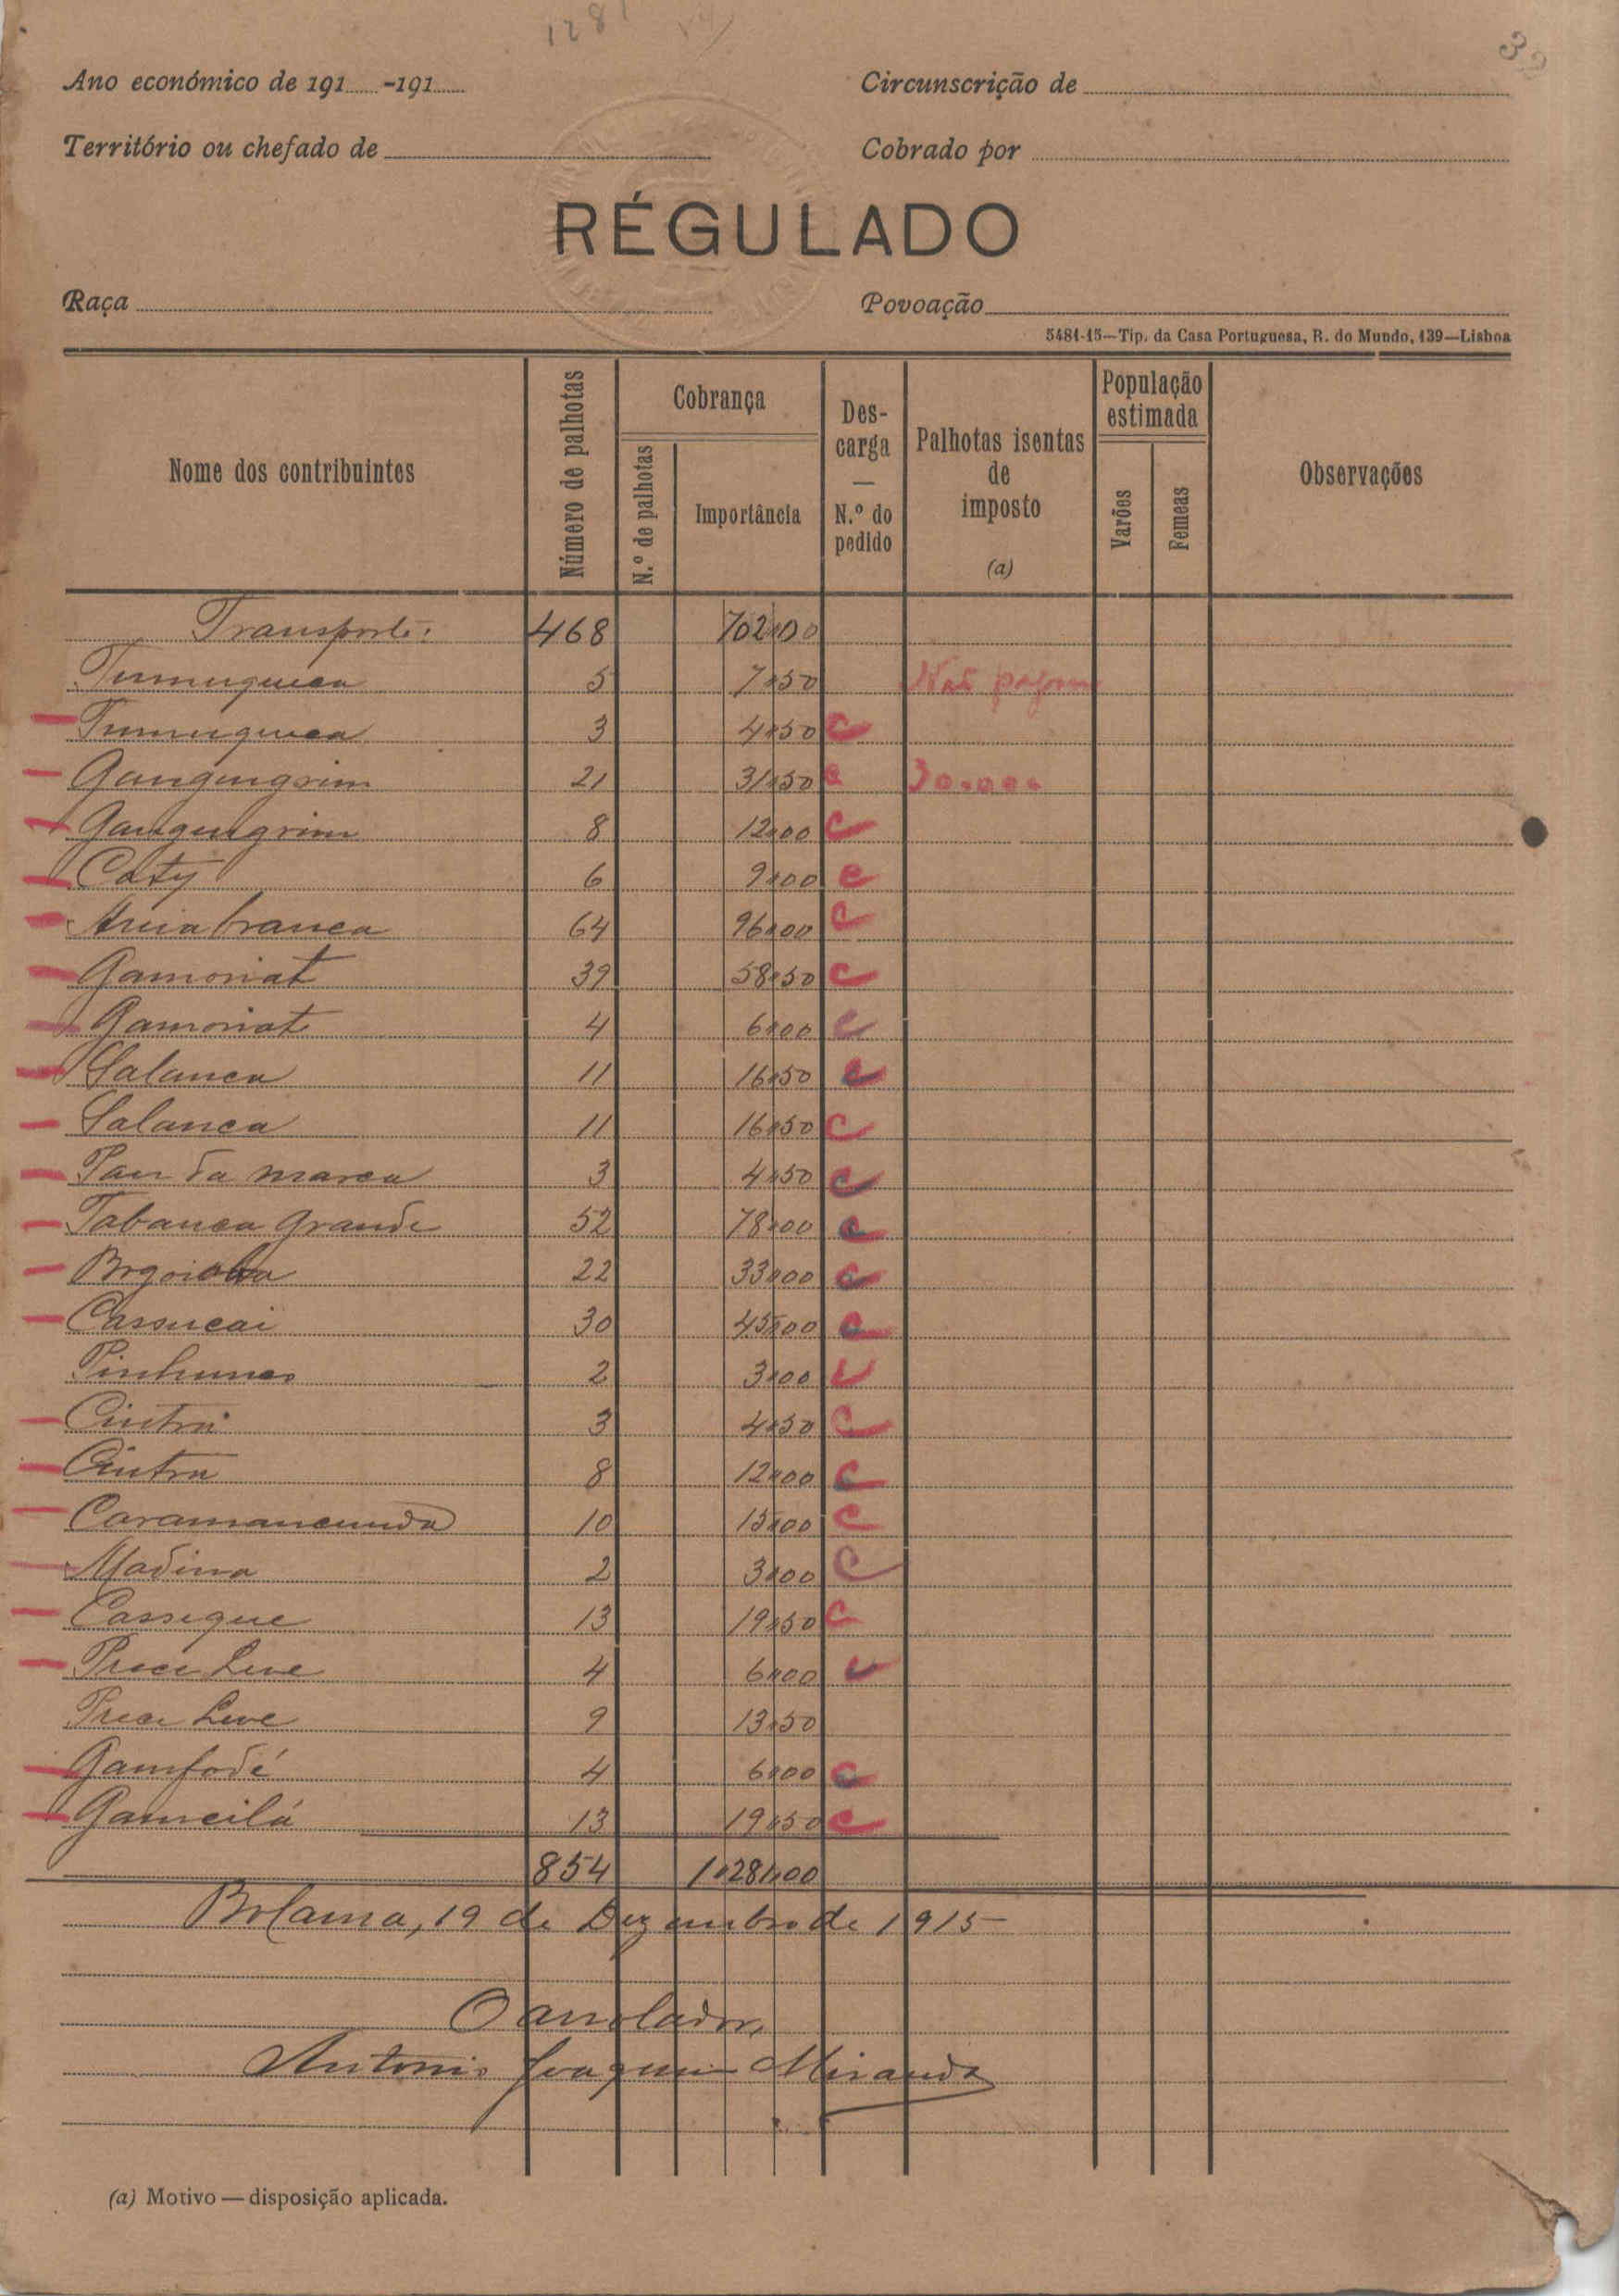 1281
Ano económico de 191......-191......
Circunscrição de
Território ou chefado de
Cobrado por
RÉGULADO
Raça
Povoação
5481-15—Tip. da Casa Portuguesa, R. do Mundo, 139—Lisboa
Nome dos contribuintes
Número de palhotas
Cobrança
N.º de palhotas
Importância
Descarga — N.º do pedido
Palhotas isentas de imposto (a)
População estimada
Varões
Femeas
Observações
Transporte: 468 702$00
5 7$50 Não pagou
3 4$50 C
21 31$50 C
8 12$00 C
Caty 6 9$00 C
Areia branca 64 96$00 C
Gamoriat 39 58$50 C
Gamoriat 4 6$00 C
Salanca 11 16$50 C
Salanca 11 16$50 C
Pau da marca 3 4$50 C
Tabanca Grande 52 78$00 C
22 33$00 C
Cassucai 30 45$00 C
2 3$00 C
Cintra 3 4$50 C
Cintra 8 12$00 C
Caramancunda 10 15$00 C
Madina 2 3$00 C
Casseque 13 19$50 C
Prece Leve 4 6$00 C
Prece Leve 9 13$50
Gamfodé 4 6$00 C
Gameilá 13 19$50 C
854 1.281$00
Bolama, 19 de Dezembro de 1915
O arrolador,
Antonio Joaquim Miranda
(a) Motivo — disposição aplicada.